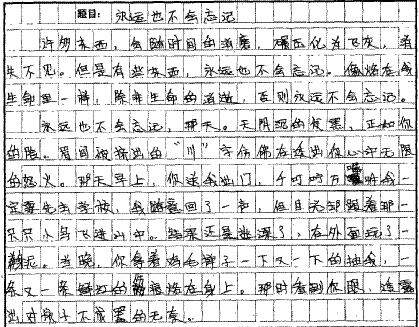 题目：永远也不会忘记
许多东西，会随时间的消磨，碾压化为飞灰，消
失不见。但是有些东西，永远也不会忘记。像烙在
生命里一样，除非生命的消逝，否则永远不会忘记。
永远也不会忘记，那天。天阴沉的使黑，正如你
的脸。眉间被挤出的“川”字仿佛在绘出你心中无限
的怒火。那天早上，你送我出门，千叮咛万嘱咐我一
定要先去学校，我随意回了一声，但目光却跟着那一
只只小鸟飞进山中。结果还是迟漂了，在外面玩了一
。当晚，你拿着鸡毛掸子一下又一下的抽我，一
条又一条的烙在身上。那时看到你眼，透露
出对我不的无奈。